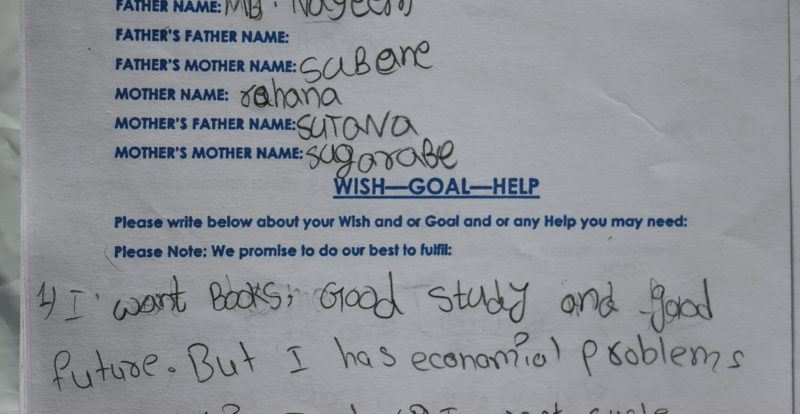 FATHER NAME: MD. Nayeem
FATHER'S FATHER NAME:
FATHER'S MOTHER NAME: SUBane
MOTHER NAME: rahana
MOTHER'S FATHER NAME: SUTANA
MOTHER'S MOTHER NAME: sugaraBe
WISH—GOAL—HELP
Please write below about your Wish and or Goal and or any Help you may need:
Please Note: We promise to do our best to fulfil:
1) I want Books, Good study and good
future. But I has economial problems